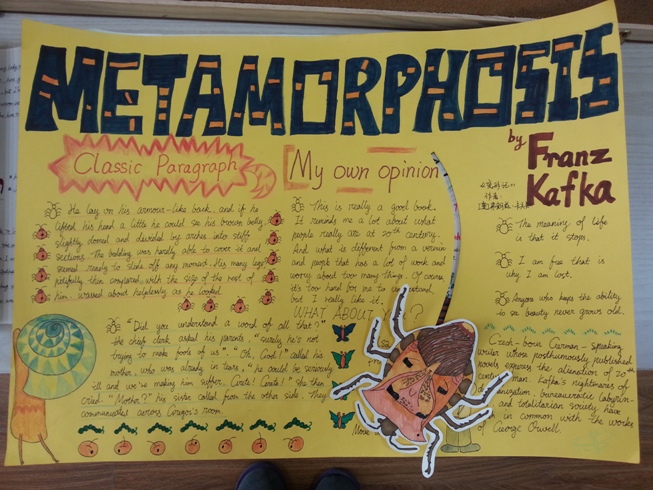 METAMORPHOSIS
by Franz
Kafka
Classic Paragraph
He lay on his armour-like back, and if he
lifted his head a little he could see his brown belly,
slightly domed and divided by arches into stiff
sections. The bedding was hardly able to cover it and
seemed ready to slide off any moment. His many legs,
pitifully thin compared with the size of the rest of
him, waved about helplessly as he looked.
"Did you understand a word of all that?"
the chief clerk asked his parents, "surely he's not
trying to make fools of us". "Oh, God!" called his
mother, who was already in tears, "he could be seriously
ill and we're making him suffer. Grete! Grete!" she then
cried. "Mother?" his sister called from the other side. They
communicated across Gregor's room.
My own opinion
This is really a good book.
It reminds me a lot about what
people really are at 20th century.
And what is different from a vermin
and people that has a lot of work and
worry about too many things. Of course
it's too hard for me to understand,
but I really like it.
WHAT ABOUT ?
The meaning of life
is that it stops.
I am free that is
why I am lost.
Anyone who keeps the ability
to see beauty never grows old.
Czech-born German-speaking
writer whose posthumously published
novels express the alienation of 20th
man. Kafka's nightmares of
bureaucratic labyrin-
and totalitarian society have
in common with the works
of George Orwell